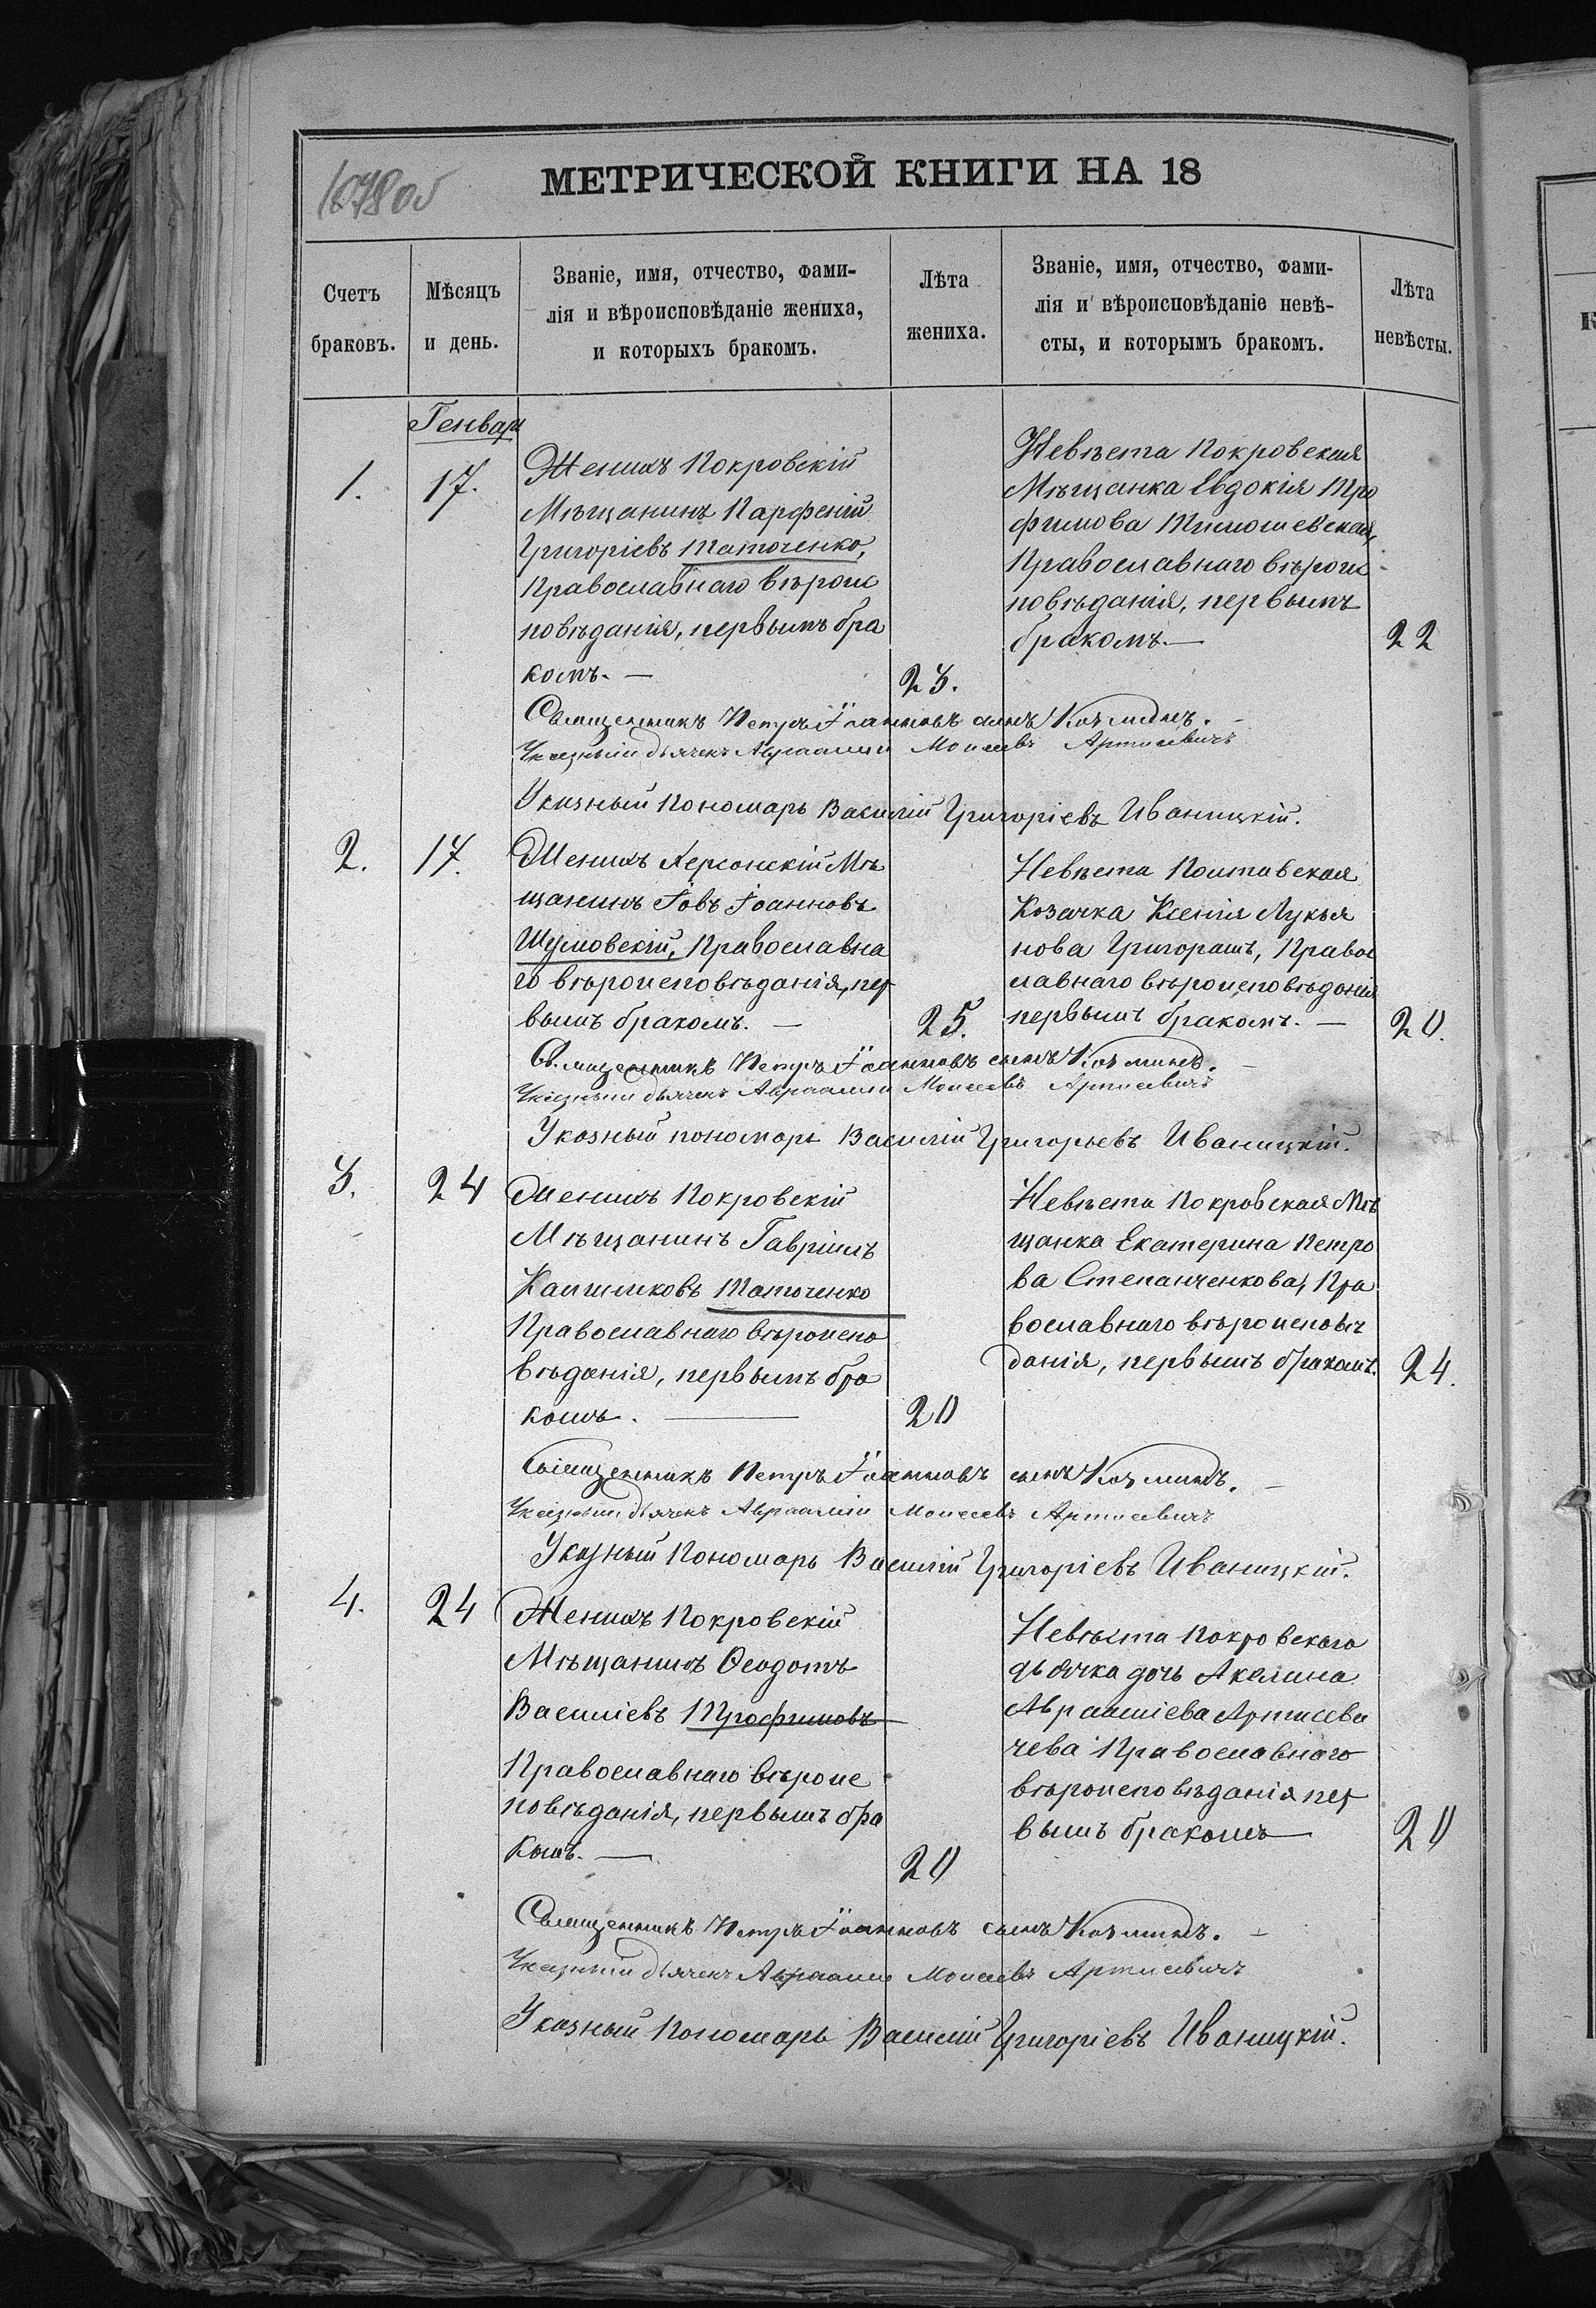 1078 об
МЕТРИЧЕСКОЙ КНИГИ НА 18
Счетъ
браковъ.
Мѣсяцъ
и день.
Званіе, имя, отчество, фами-
лія и вѣроисповѣданіе жениха,
и которыхъ бракомъ.
Лѣта
жениха.
Званіе, имя, отчество, фами-
лія и вѣроисповѣданіе невѣ-
сты, и которымъ бракомъ.
Лѣта
невѣсты.
Генварь
1.
17.
Женихъ Покровскій
Мѣщанинъ Парфеній
Григоріевъ Таточенко,
Православнаго вѣроис
повѣданія, первымъ бра
комъ. —
23.
Невѣста Покровская
Мѣщанка Евдокія Тро
фимова Тимошевская,
Православнаго вѣроис
повѣданія, первымъ
бракомъ. —
22
Священникъ Петръ Іоанновъ сынъ Козминъ. —
Указный дьячекъ Авраамій Моисеевъ Артисевичъ
Указный Пономарь Василій Григоріевъ Иваницкій.
2.
17.
Женихъ Херсонскій Мѣ
щанинъ Іовъ Іоанновъ
Шумовскій, Православна
го вѣроисповѣданія, пер
вымъ бракомъ. —
25.
Невѣста Полтавская
Козачка Ксенія Лукья
нова Григорашъ, Правос
лавнаго вѣроисповѣданія
первымъ бракомъ. —
20.
Священникъ Петръ Іоанновъ сынъ Козминъ. —
Указный дьячекъ Авраамій Моисеевъ Артисевичъ
Указный пономарь Василій Григорьевъ Иваницкій.
3.
24
Женихъ Покровскій
Мѣщанинъ Гавріилъ
Каллиниковъ Таточенко
Православнаго вѣроиспо
вѣданія, первымъ бра
комъ. —
20
Невѣста Покровская Мѣ
щанка Екатерина Петро
ва Степанченкова, Пра
вославнаго вѣроисповѣ
данія, первымъ бракомъ.
24.
Священникъ Петръ Іоанновъ сынъ Козминъ. —
Указный дьячекъ Авраамій Моисеевъ Артисевичъ
Указный Пономарь Василій Григоріевъ Иваницкій.
4.
24
Женихъ Покровскій
Мѣщанинъ Ѳеодотъ
Василіевъ Трофимовъ
Православнаго вѣроис
повѣданія, первымъ бра
комъ. —
20
Невѣста Покровскаго
дьячка дочь Акилина
Аврааміева Артисеви
чева Православнаго
вѣроисповѣданія пер
вымъ бракомъ —
20
Священникъ Петръ Іоанновъ сынъ Козминъ. —
Указный дьячекъ Авраамій Моисеевъ Артисевичъ
Указный Пономарь Василій Григоріевъ Иваницкій.